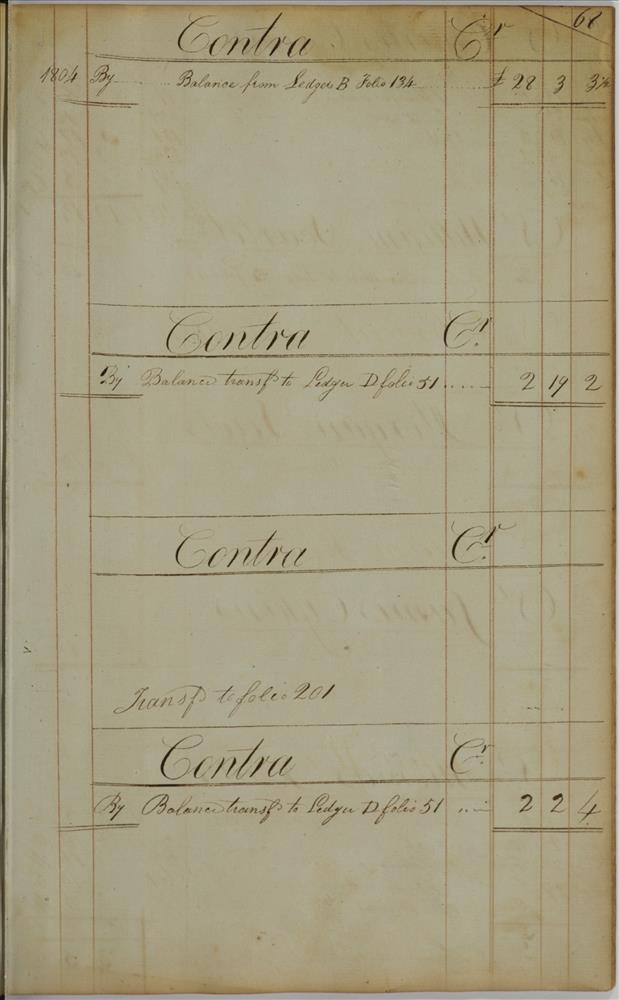 68
Contra Cr
1804 By Balance from Ledger B Folio 134 £ 28 3 3½
Contra Cr.
By Balance transfd to Ledger D folio 51 2 19 2
Contra Cr.
Transfd to folio 201
Contra Cr.
By Balance transfd to Ledger D folio 51 2 2 4